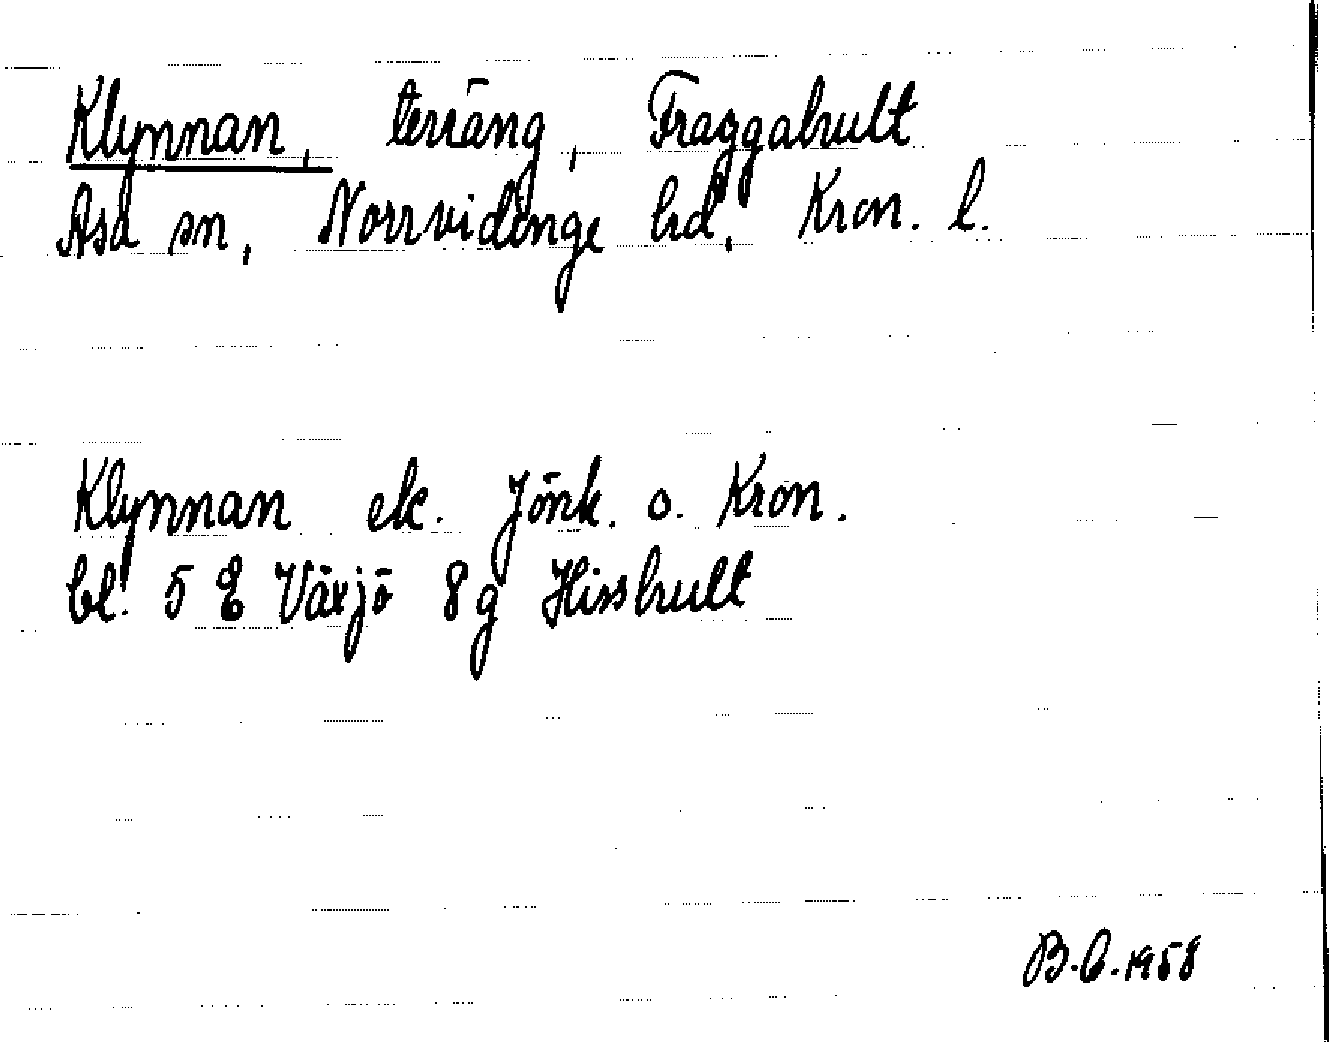 Klynnan, terräng, Fraggahult
Asa sn, Norrvidinge hd, Kron. l.
Klynnan ek. Jönk. o. Kron.
bl. 5 E Växjö 8g Hisshult
B.L. 1958